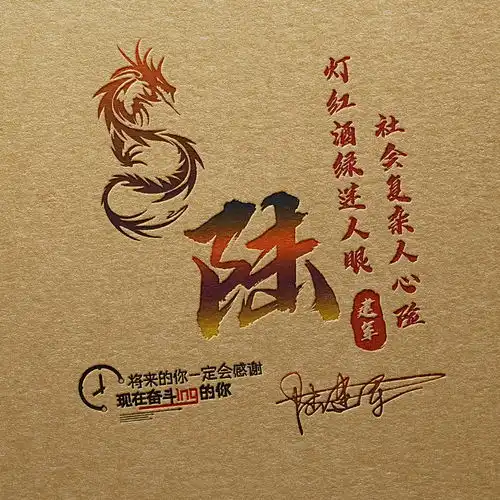 社会复杂人心险
灯红酒绿迷人眼
建军
将来的你一定会感谢
现在奋斗ing的你